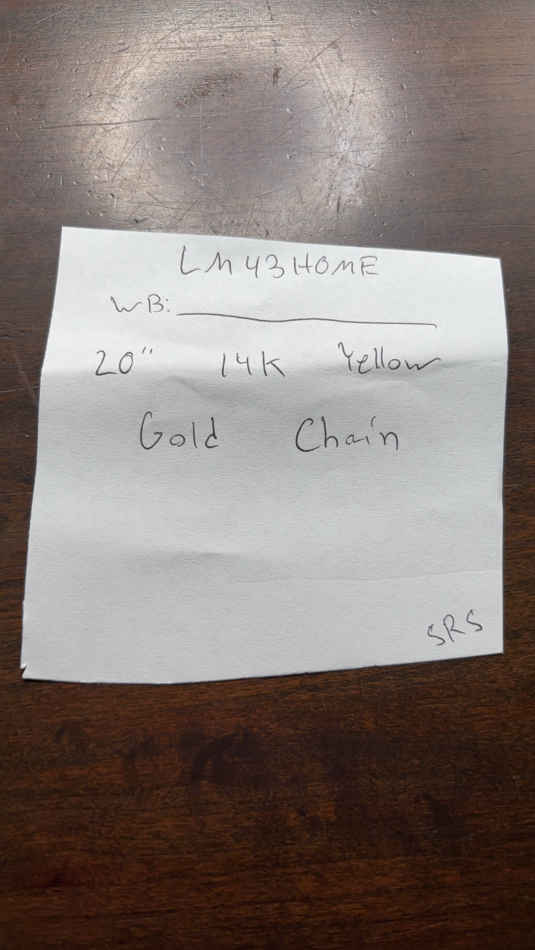 LM43HOME
WB:
20" 14K Yellow
Gold Chain
SRS